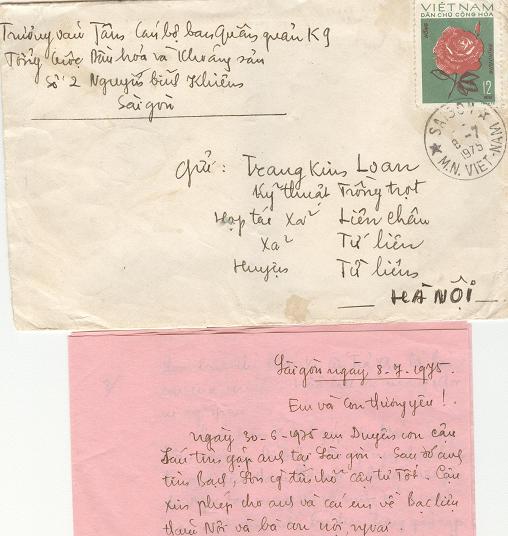 Trương văn Tâm Cán bộ ban Quân quản K9
Tổng cục Dầu hoá và Khoáng sản
Số 2 Nguyễn bỉnh Khiêm
Sài gòn
VIỆT NAM
DÂN CHỦ CỘNG HÒA
12
SAIGON
8-7
1975
M.N. VIET-NAM
gửi: Trang Kim Loan
Kỹ thuật Trồng trọt
Hợp tác Xã Liên châu
Xã Tứ liên
Huyện Từ liêm
HÀ NỘI
Sài gòn ngày 8.7.1975.
Em và Con thương yêu!
Ngày 30-6-1975 em Duyên con cậu
Sáu tìm gặp anh tại Sài gòn. Sau đó anh
tìm Bạch, Sơn cậu Tư Tốt. Cậu
xin phép cho anh và các em về Bạc liêu
thăm Nội và bà con nội, ngoại.